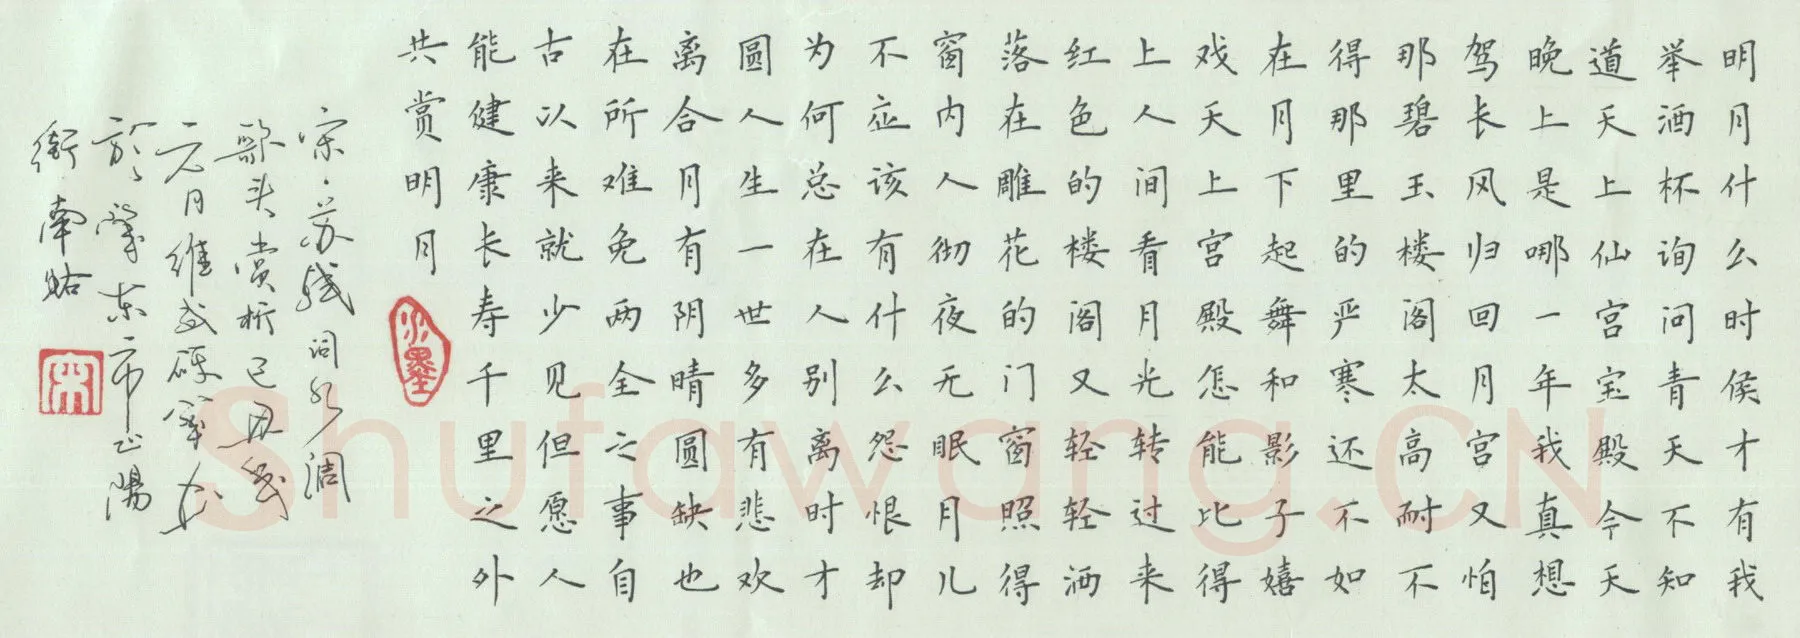 明月什么时侯才有我
举酒杯询问青天不知
道天上仙宫宝殿今天
晚上是哪一年我真想
驾长风归回月宫又怕
那碧玉楼阁太高耐不
得那里的严寒还不如
在月下起舞和影子嬉
戏天上宫殿怎能比得
上人间看月光转过来
红色的楼阁又轻轻洒
落在雕花的门窗照得
窗内人彻夜无眠月儿
不应该有什么怨恨却
为何总在人别离时才
圆人生一世多有悲欢
离合月有阴晴圆缺也
在所难免两全之事自
古以来就少见但愿人
能健康长寿千里之外
共赏明月
水墨
宋·苏轼词水调
歌头赏析己丑
元月维
于肇东市正阳
街南
宋
Shufawang.CN